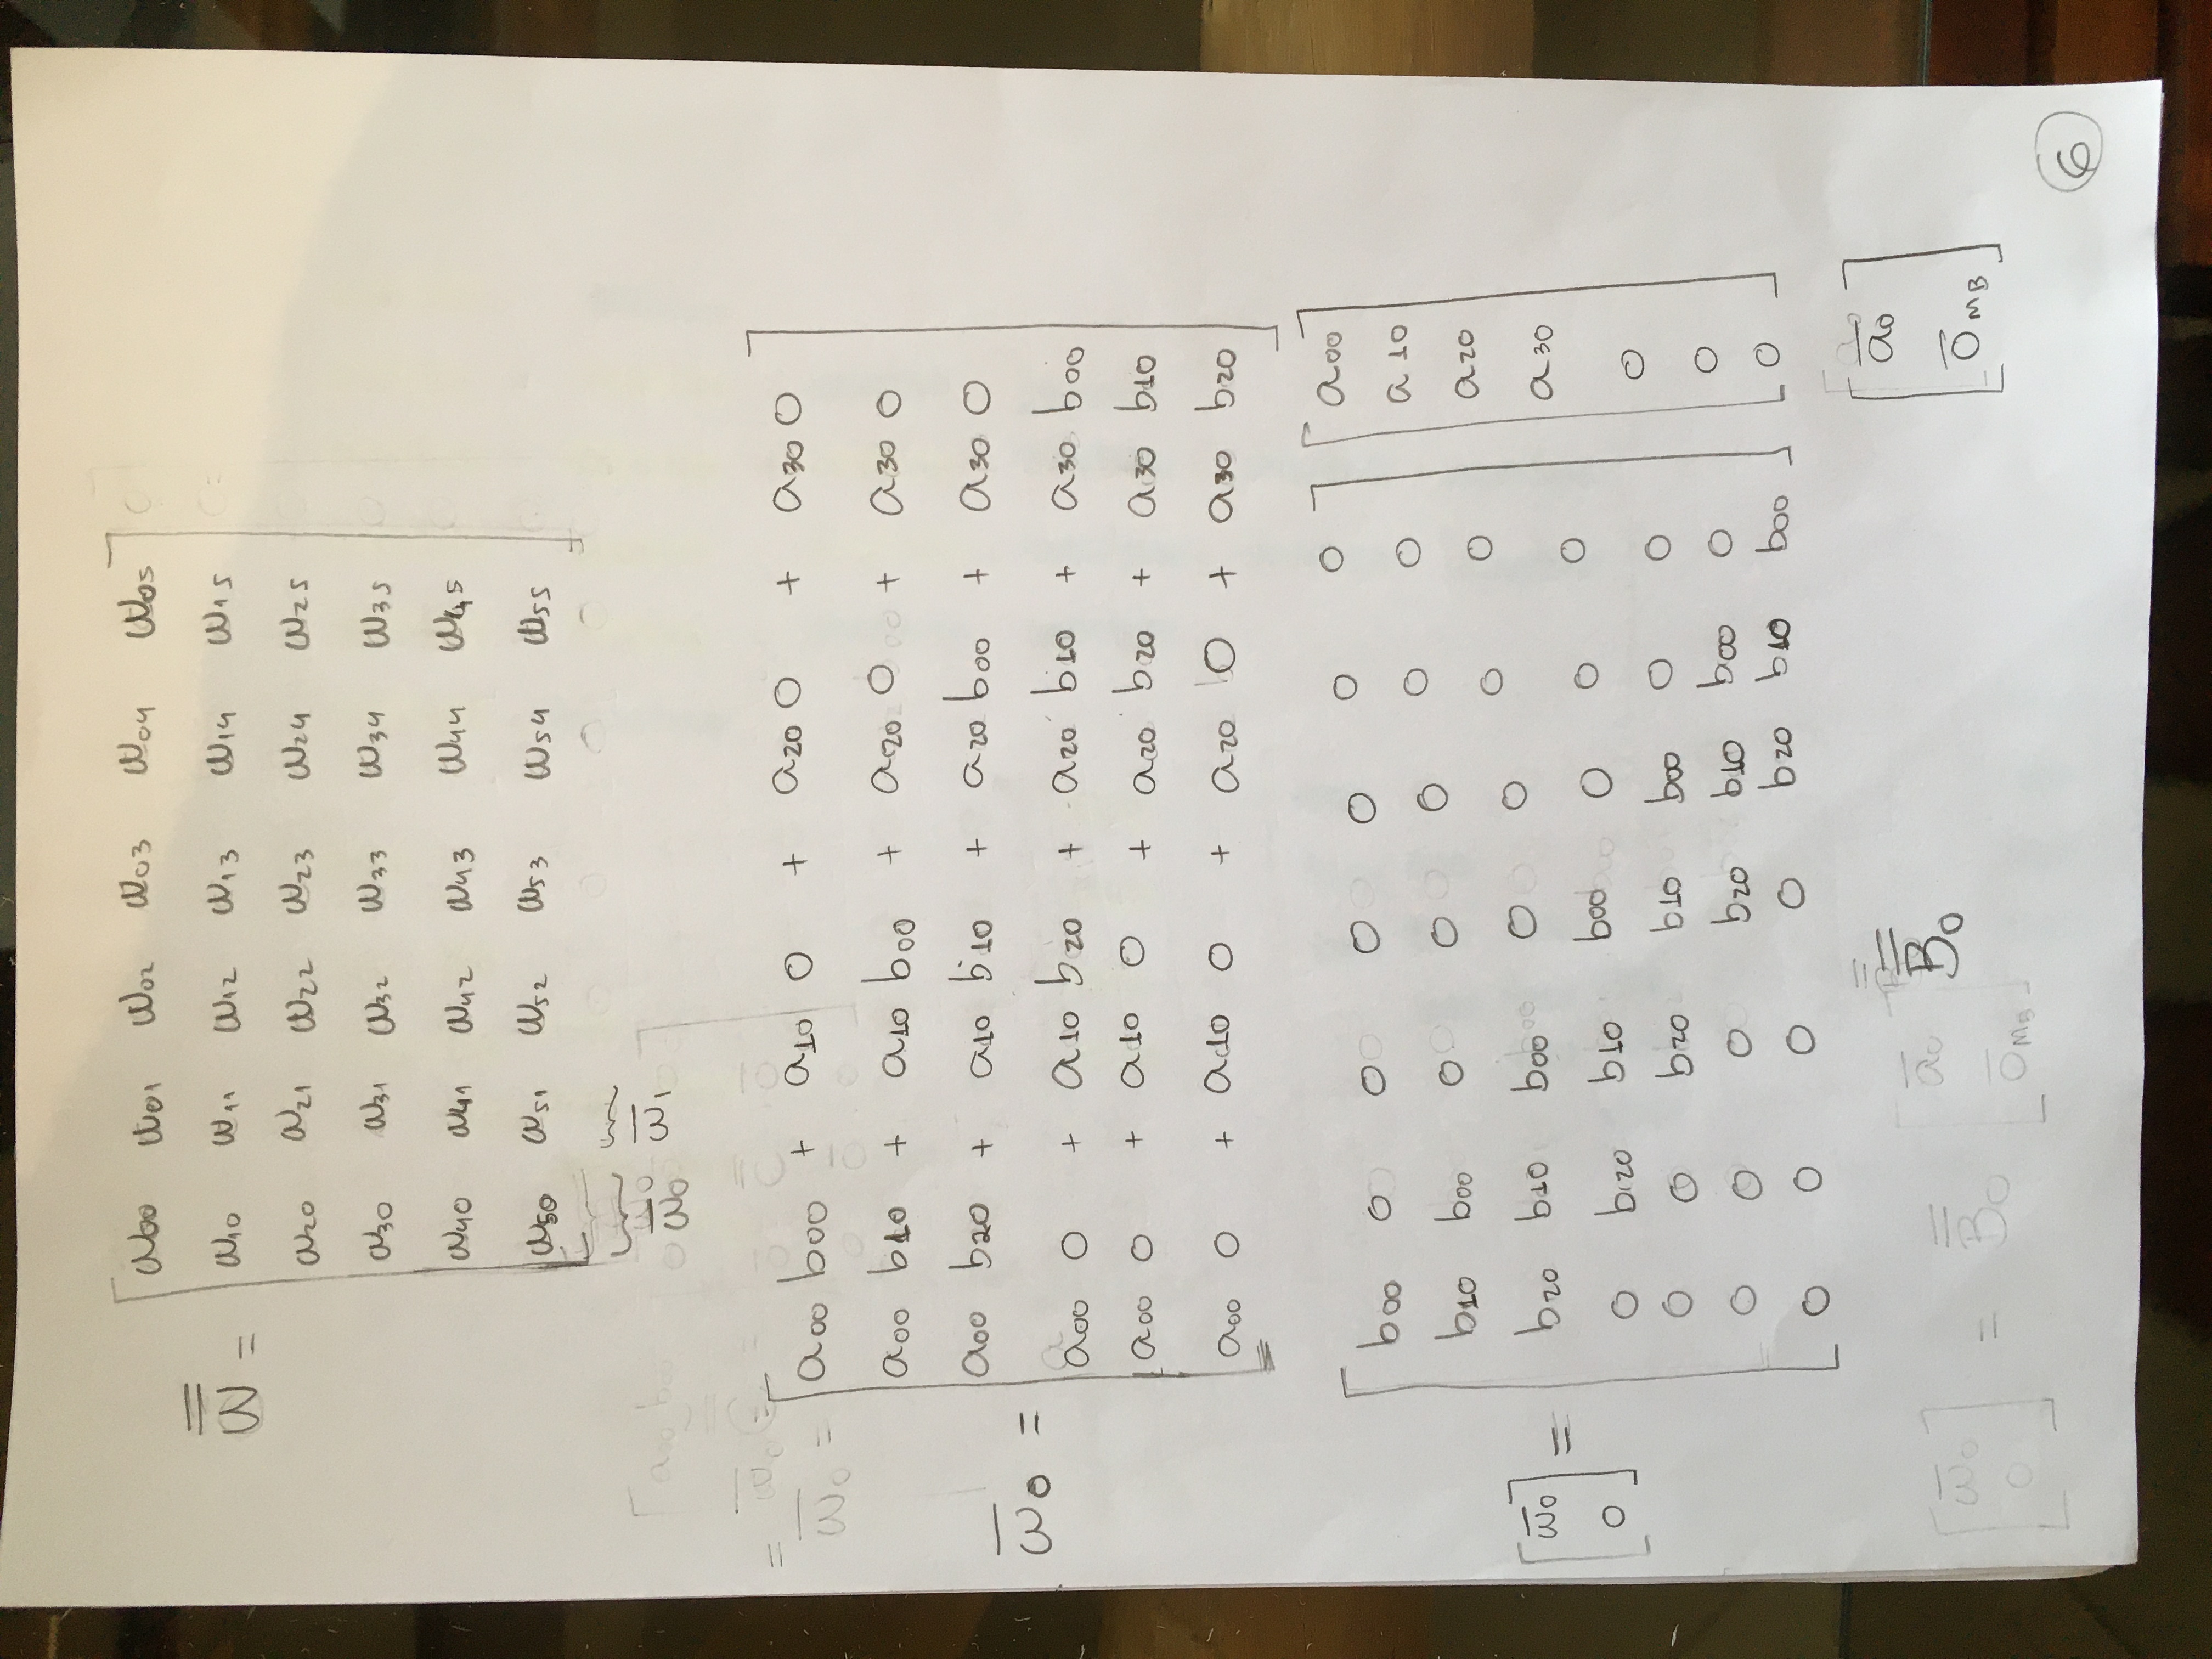 w00 w01 w02 w03 w04 w05
w10 w11 w12 w13 w14 w15
w̿ =
w20 w21 w22 w23 w24 w25
w30 w31 w32 w33 w34 w35
w40 w41 w42 w43 w44 w45
w50 w51 w52 w53 w54 w55
w̅0 w̅1
a00 b00 + a10 0 + a20 0 + a30 0
a00 b10 + a10 b00 + a20 0 + a30 0
a00 b20 + a10 b10 + a20 b00 + a30 0
w̅0 =
a00 0 + a10 b20 + a20 b10 + a30 b00
a00 0 + a10 0 + a20 b20 + a30 b10
a00 0 + a10 0 + a20 0 + a30 b20
b00 0 0 0 0 0 0 a00
b10 b00 0 0 0 0 0 a10
b20 b10 b00 0 0 0 0 a20
w̅0 =
0
0 b20 b10 b00 0 0 0 a30
0 0 b20 b10 b00 0 0 0
0 0 0 b20 b10 b00 0 0
0 0 0 0 b20 b10 b00 0
B̿0
a̅0
0̅MB
w̅0 = B̿0 a̅0
0 0̅MB
6